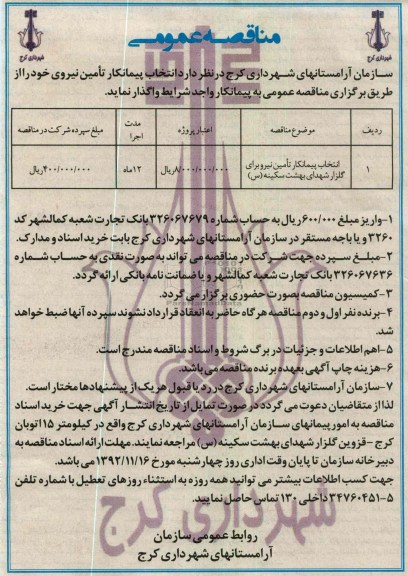 مناقصه عمومی
شهرداری کرج
شهرداری کرج
سازمان آرامستانهای شهرداری کرج در نظر دارد انتخاب پیمانکار تأمین نیروی خود را از
طریق برگزاری مناقصه عمومی به پیمانکار واجد شرایط واگذار نماید.
ردیف موضوع مناقصه اعتبار پروژه مدت اجرا مبلغ سپرده شرکت در مناقصه
۱ انتخاب پیمانکار تأمین نیرو برای گلزار شهدای بهشت سکینه (س) ۸/۰۰۰/۰۰۰/۰۰۰ریال ۱۲ماه ۴۰۰/۰۰۰/۰۰۰ریال
۱-واریز مبلغ ۶۰۰/۰۰۰ ریال به حساب شماره ۳۲۶۰۶۷۶۷۹ بانک تجارت شعبه کمالشهر کد
۳۲۶۰ و یا باجه مستقر در سازمان آرامستانهای شهرداری کرج بابت خرید اسناد و مدارک.
۲-مبلغ سپرده جهت شرکت در مناقصه می تواند به صورت نقدی به حساب شماره
۳۲۶۰۶۷۶۳۶ بانک تجارت شعبه کمالشهر و یا ضمانت نامه بانکی ارائه گردد.
۳-کمیسیون مناقصه بصورت حضوری برگزار می گردد.
۴-برنده نفر اول و دوم مناقصه هرگاه حاضر به انعقاد قرارداد نشوند سپرده آنها ضبط خواهد
شد.
۵-اهم اطلاعات و جزئیات در برگ شروط و اسناد مناقصه مندرج است.
۶-هزینه چاپ آگهی بعهده برنده مناقصه می باشد.
۷-سازمان آرامستانهای شهرداری کرج در رد یا قبول هر یک از پیشنهادها مختار است.
لذا از متقاضیان دعوت می گردد در صورت تمایل از تاریخ انتشار آگهی جهت خرید اسناد
مناقصه به امور پیمانهای سازمان آرامستانهای شهرداری کرج واقع در کیلومتر ۱۵ اتوبان
کرج -قزوین گلزار شهدای بهشت سکینه (س) مراجعه نمایند. مهلت ارائه اسناد مناقصه به
دبیرخانه سازمان تا پایان وقت اداری روز چهارشنبه مورخ ۱۳۹۲/۱۱/۱۶ می باشد.
جهت کسب اطلاعات بیشتر می توانید همه روزه به استثناء روزهای تعطیل با شماره تلفن
۵-۳۴۷۶۰۴۵۱ داخلی ۱۳۰ تماس حاصل نمایید.
شهرداری کرج
روابط عمومی سازمان
آرامستانهای شهرداری کرج